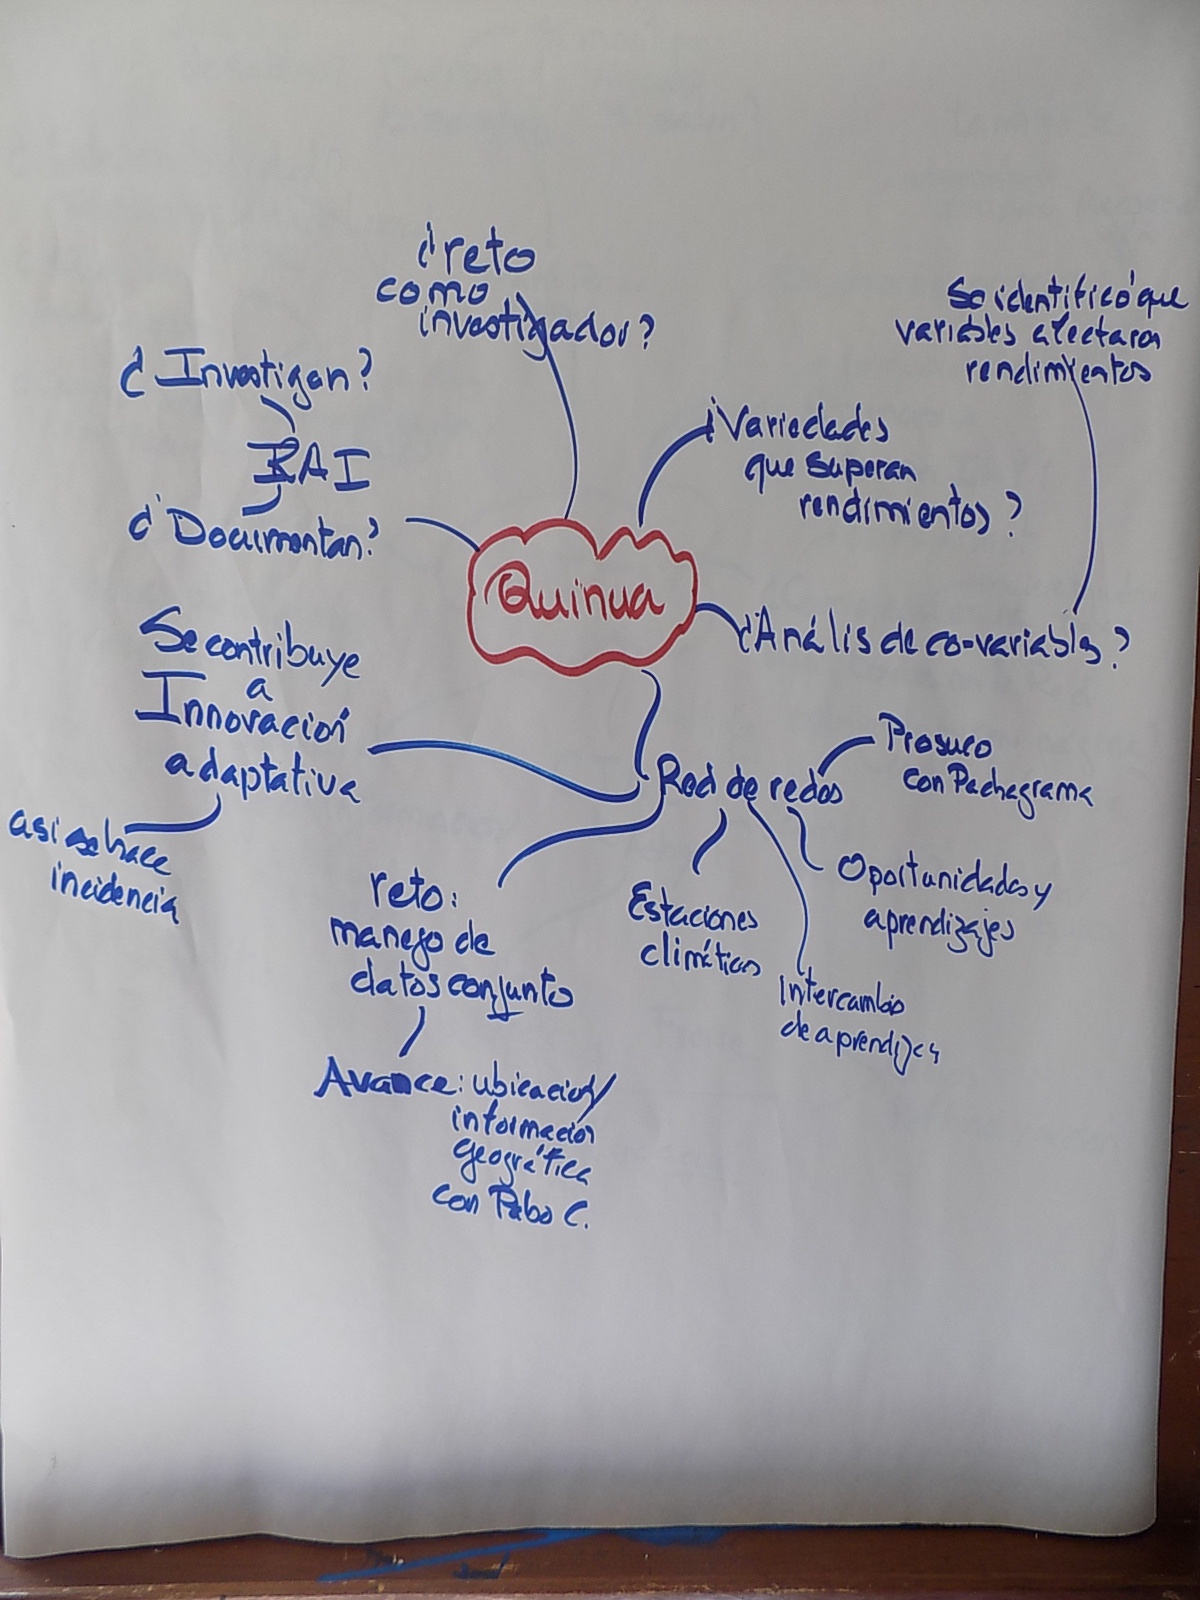 ¿reto
como
investigador?
Se identificó que
variables afectaron
rendimientos
¿Investigan?
RAI
¿Documentan?
¿Variedades
que superan
rendimientos?
Quinua
¿Análisis de co-variables?
Se contribuye
a
Innovación
adaptativa
así se hace
incidencia
Red de redes
Prosuco
con Pachagrama
Oportunidades y
aprendizajes
Estaciones
climáticas
Intercambio
de aprendizajes
reto:
manejo de
datos conjunto
Avance: ubicación/
información
geográfica
con Pablo C.